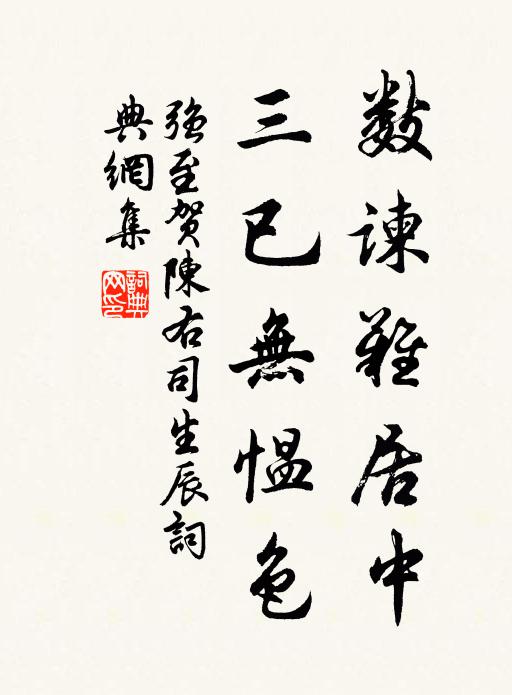 數諫難居中
三已無愠色
強至賀陳右司生辰詞
典網集
詞典網印